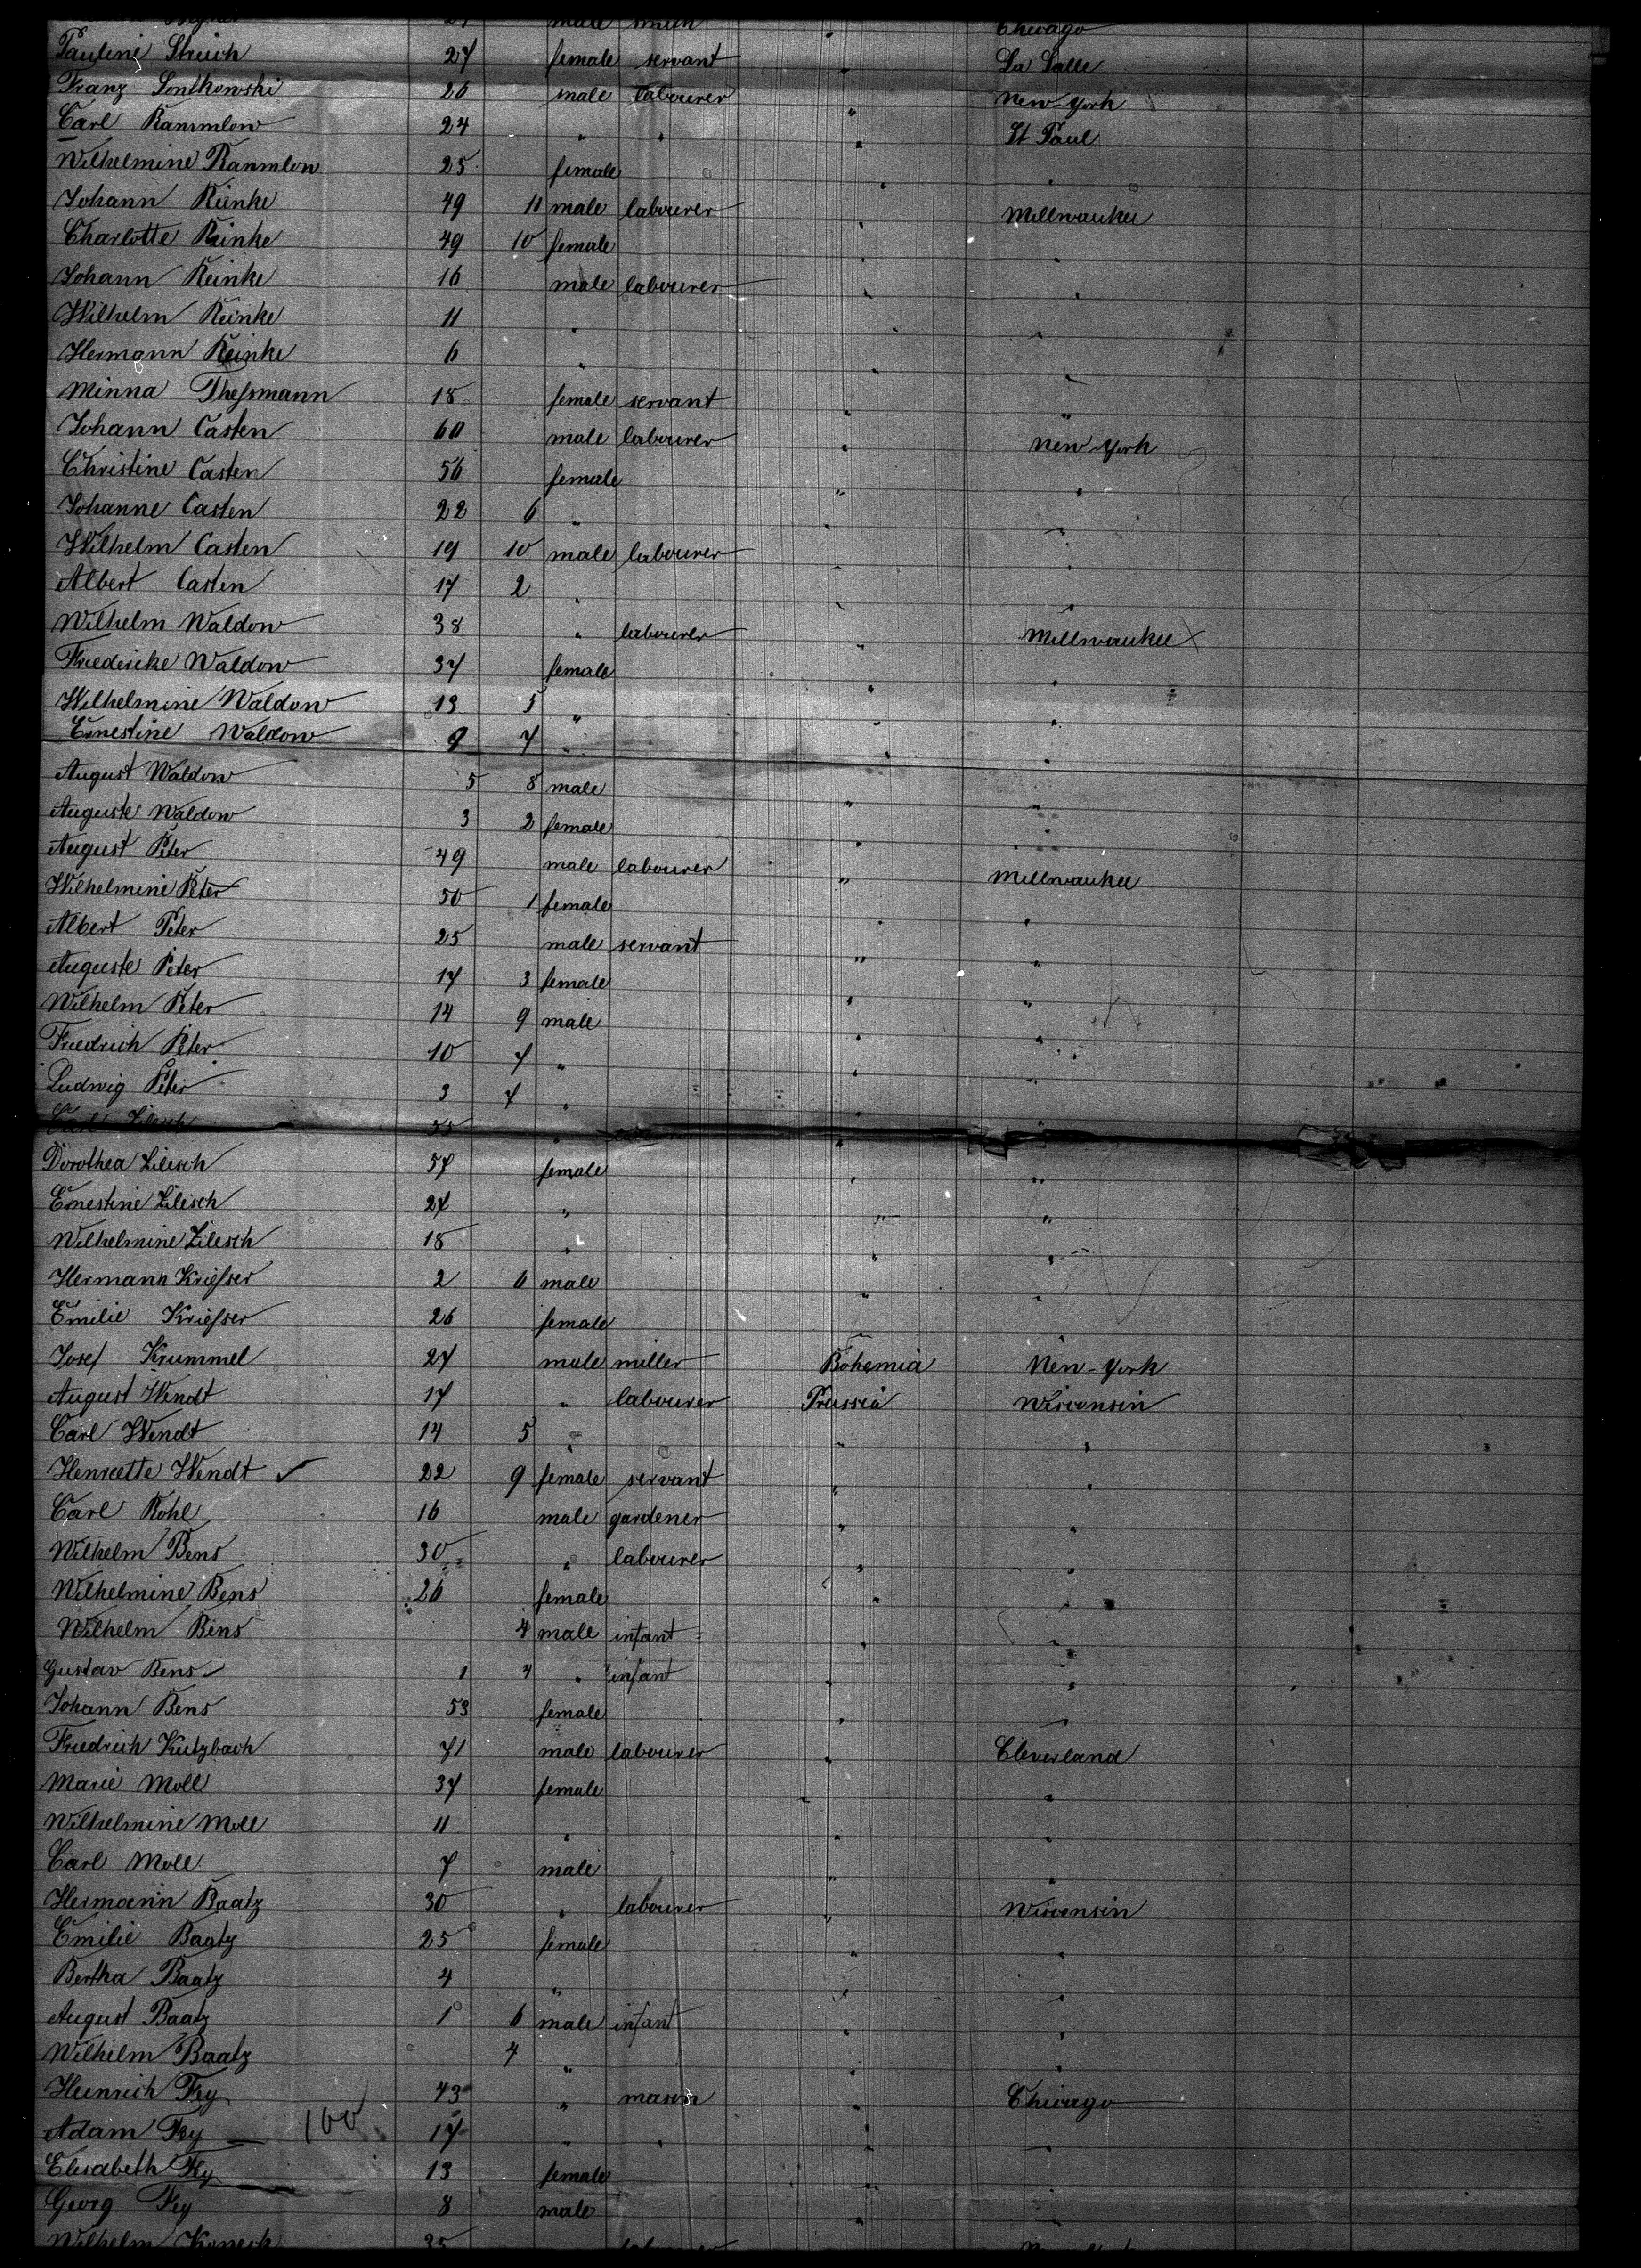 male smith Chicago
Pauline Streich 27 female servant " La Salle
Franz Sontkowski 26 male labourer " New-York
Carl Rammlow 24 " " " St Paul
Wilhelmine Rammlow 25 female " "
Johann Reinke 49 11 male labourer " Millwaukee
Charlotte Reinke 49 10 female " "
Johann Reinke 16 male labourer " "
Wilhelm Reinke 11 " " "
Hermann Reinke 6 " " "
Minna Theßmann 18 female servant " "
Johann Casten 60 male labourer " New-York
Christine Casten 56 female " "
Johanne Casten 22 6 " " "
Wilhelm Casten 19 10 male labourer " "
Albert Casten 17 2 " " "
Wilhelm Waldow 38 " labourer " Millwaukee
Friedericke Waldow 37 female " "
Wilhelmine Waldow 13 5 " " "
Ernestine Waldow 9 7 " " "
August Waldow 5 8 male " "
Auguste Waldow 3 2 female " "
August Peter 49 male labourer " Millwaukee
Wilhelmine Peter 50 1 female " "
Albert Peter 25 male servant " "
Auguste Peter 17 3 female " "
Wilhelm Peter 14 9 male " "
Friedrich Peter 10 7 " " "
Ludwig Peter 3 7 " " "
Carl Zilesch 55 " " "
Dorothea Zilesch 57 female " "
Ernestine Zilesch 27 " " "
Wilhelmine Zilesch 18 " " "
Hermann Krießer 2 6 male " "
Emilie Krießer 26 female "
Josef Krummel 27 male miller Bohemia New-York
August Wendt 17 " labourer Prussia Wisconsin
Carl Wendt 14 5 " " "
Henriette Wendt 22 9 female servant " "
Carl Kohl 16 male gardener " "
Wilhelm Bens 30 " labourer " "
Wilhelmine Bens 26 female " "
Wilhelm Bens 4 male infant " "
Gustav Bens 1 4 " infant " "
Johann Bens 53 female " "
Friedrich Kutzbach 71 male labourer " Cleverland
Marie Moll 37 female " "
Wilhelmine Moll 11 " " "
Carl Moll 7 male " "
Hermann Baatz 30 " labourer " Wisconsin
Emilie Baatz 25 female " "
Bertha Baatz 4 " " "
August Baatz 1 6 male infant " "
Wilhelm Baatz 4 " " "
Heinrich Fey 43 " mason " Chicago
Adam Fey 100 17 " " " "
Elisabeth Fey 13 female "
Georg Fey 8 male "
Wilhelm 35 labourer